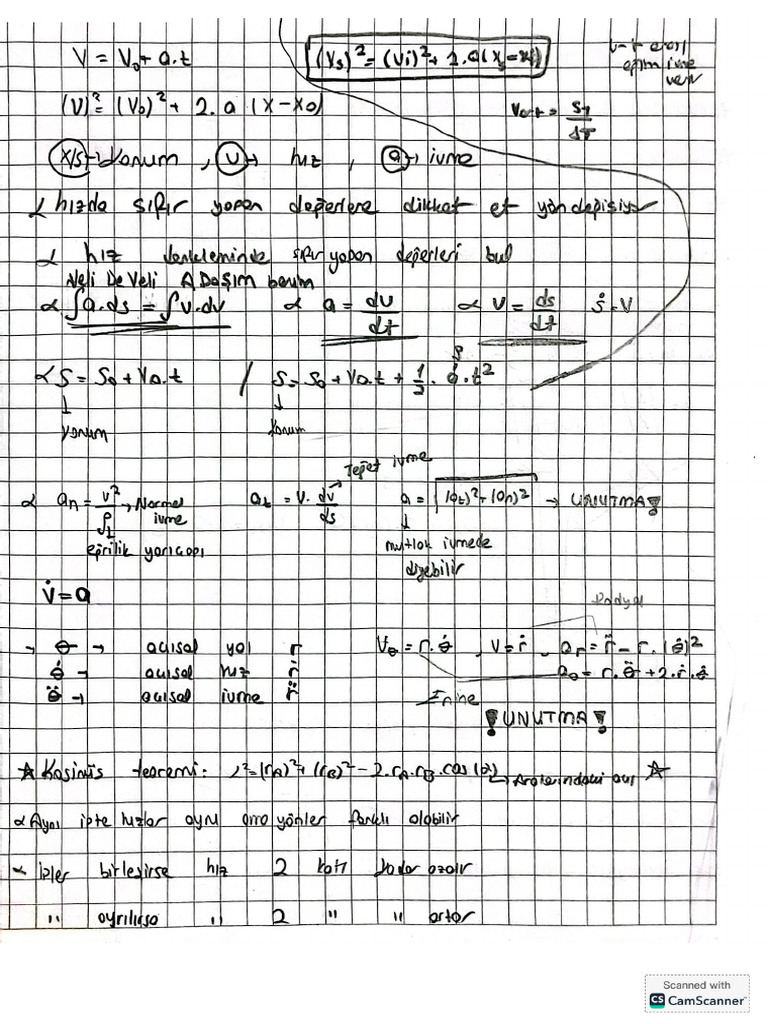 V = V₀ + a.t
(Vs)² = (Vi)² + 2.a(xs-xi)
v-t eğrisi
eğim ivme
verir
(V)² = (V₀)² + 2.a (X-X₀)
Vort = ST/ΔT
X/s → Konum , V → hız , a → ivme
∝ hızda sıfır yapan değerlere dikkat et yön değişiyor
∝ hız denkleminde sıfır yapan değerleri bul
Veli De Veli ADaşım benim
∝ ∫a.ds = ∫v.dv ∝ a = dv/dt ∝ V = ds/dt ṡ=V
∝ S = S₀ + V₀.t / S = S₀ + V₀.t + 1/2.a.t²
↓ Konum ↓ Konum
∝ an = v²/ρ → Normal ivme at = v.dv/ds → Teğet ivme a = √(at)²+(an)² → UNUTMA!
eğrilik yarıçapı
mutlak ivmede
diyebilir
V̇ = a
Radyal
→ θ → açısal yol r Vθ = r.θ̇ , V = ṙ , ar = r̈ - r.(θ̇)²
θ̇ → açısal hız ṙ aθ = r.θ̈ + 2.ṙ.θ̇
θ̈ → açısal ivme r̈ Enine
!UNUTMA!
☆ Kosinüs teoremi: L² = (rA)² + (rB)² - 2.rA.rB.cos(α) → Aralarındaki açı ☆
∝ Aynı ipte hızlar aynı ama yönler farklı olabilir
∝ ipler birleşirse hız 2 katı kadar azalır
" ayrılırsa " 2 " " artar
Scanned with
CS CamScanner